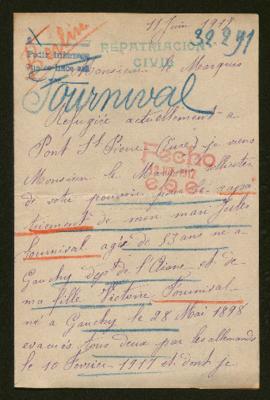 11 Juin 1918
Berline
39.2.91
REPATRIACION
CIVIL
Pedir informes
Monsieur le Marquis
Fournival
Refugiée actuellement a
Pont St Pierre (Eure) je viens
Monsieur le Marquis solliciter
de votre pouvoir pour le rapa
triement de mon mari Jules
Fournival agé de 53 ans né a
Gauchy dept de l'Aisne et de
ma fille Victoire Fournival
né a Gauchy le 28 Mai 1898
evacués tous deux par les allemands
le 10 Fevrier 1917 et dont je
Fecho